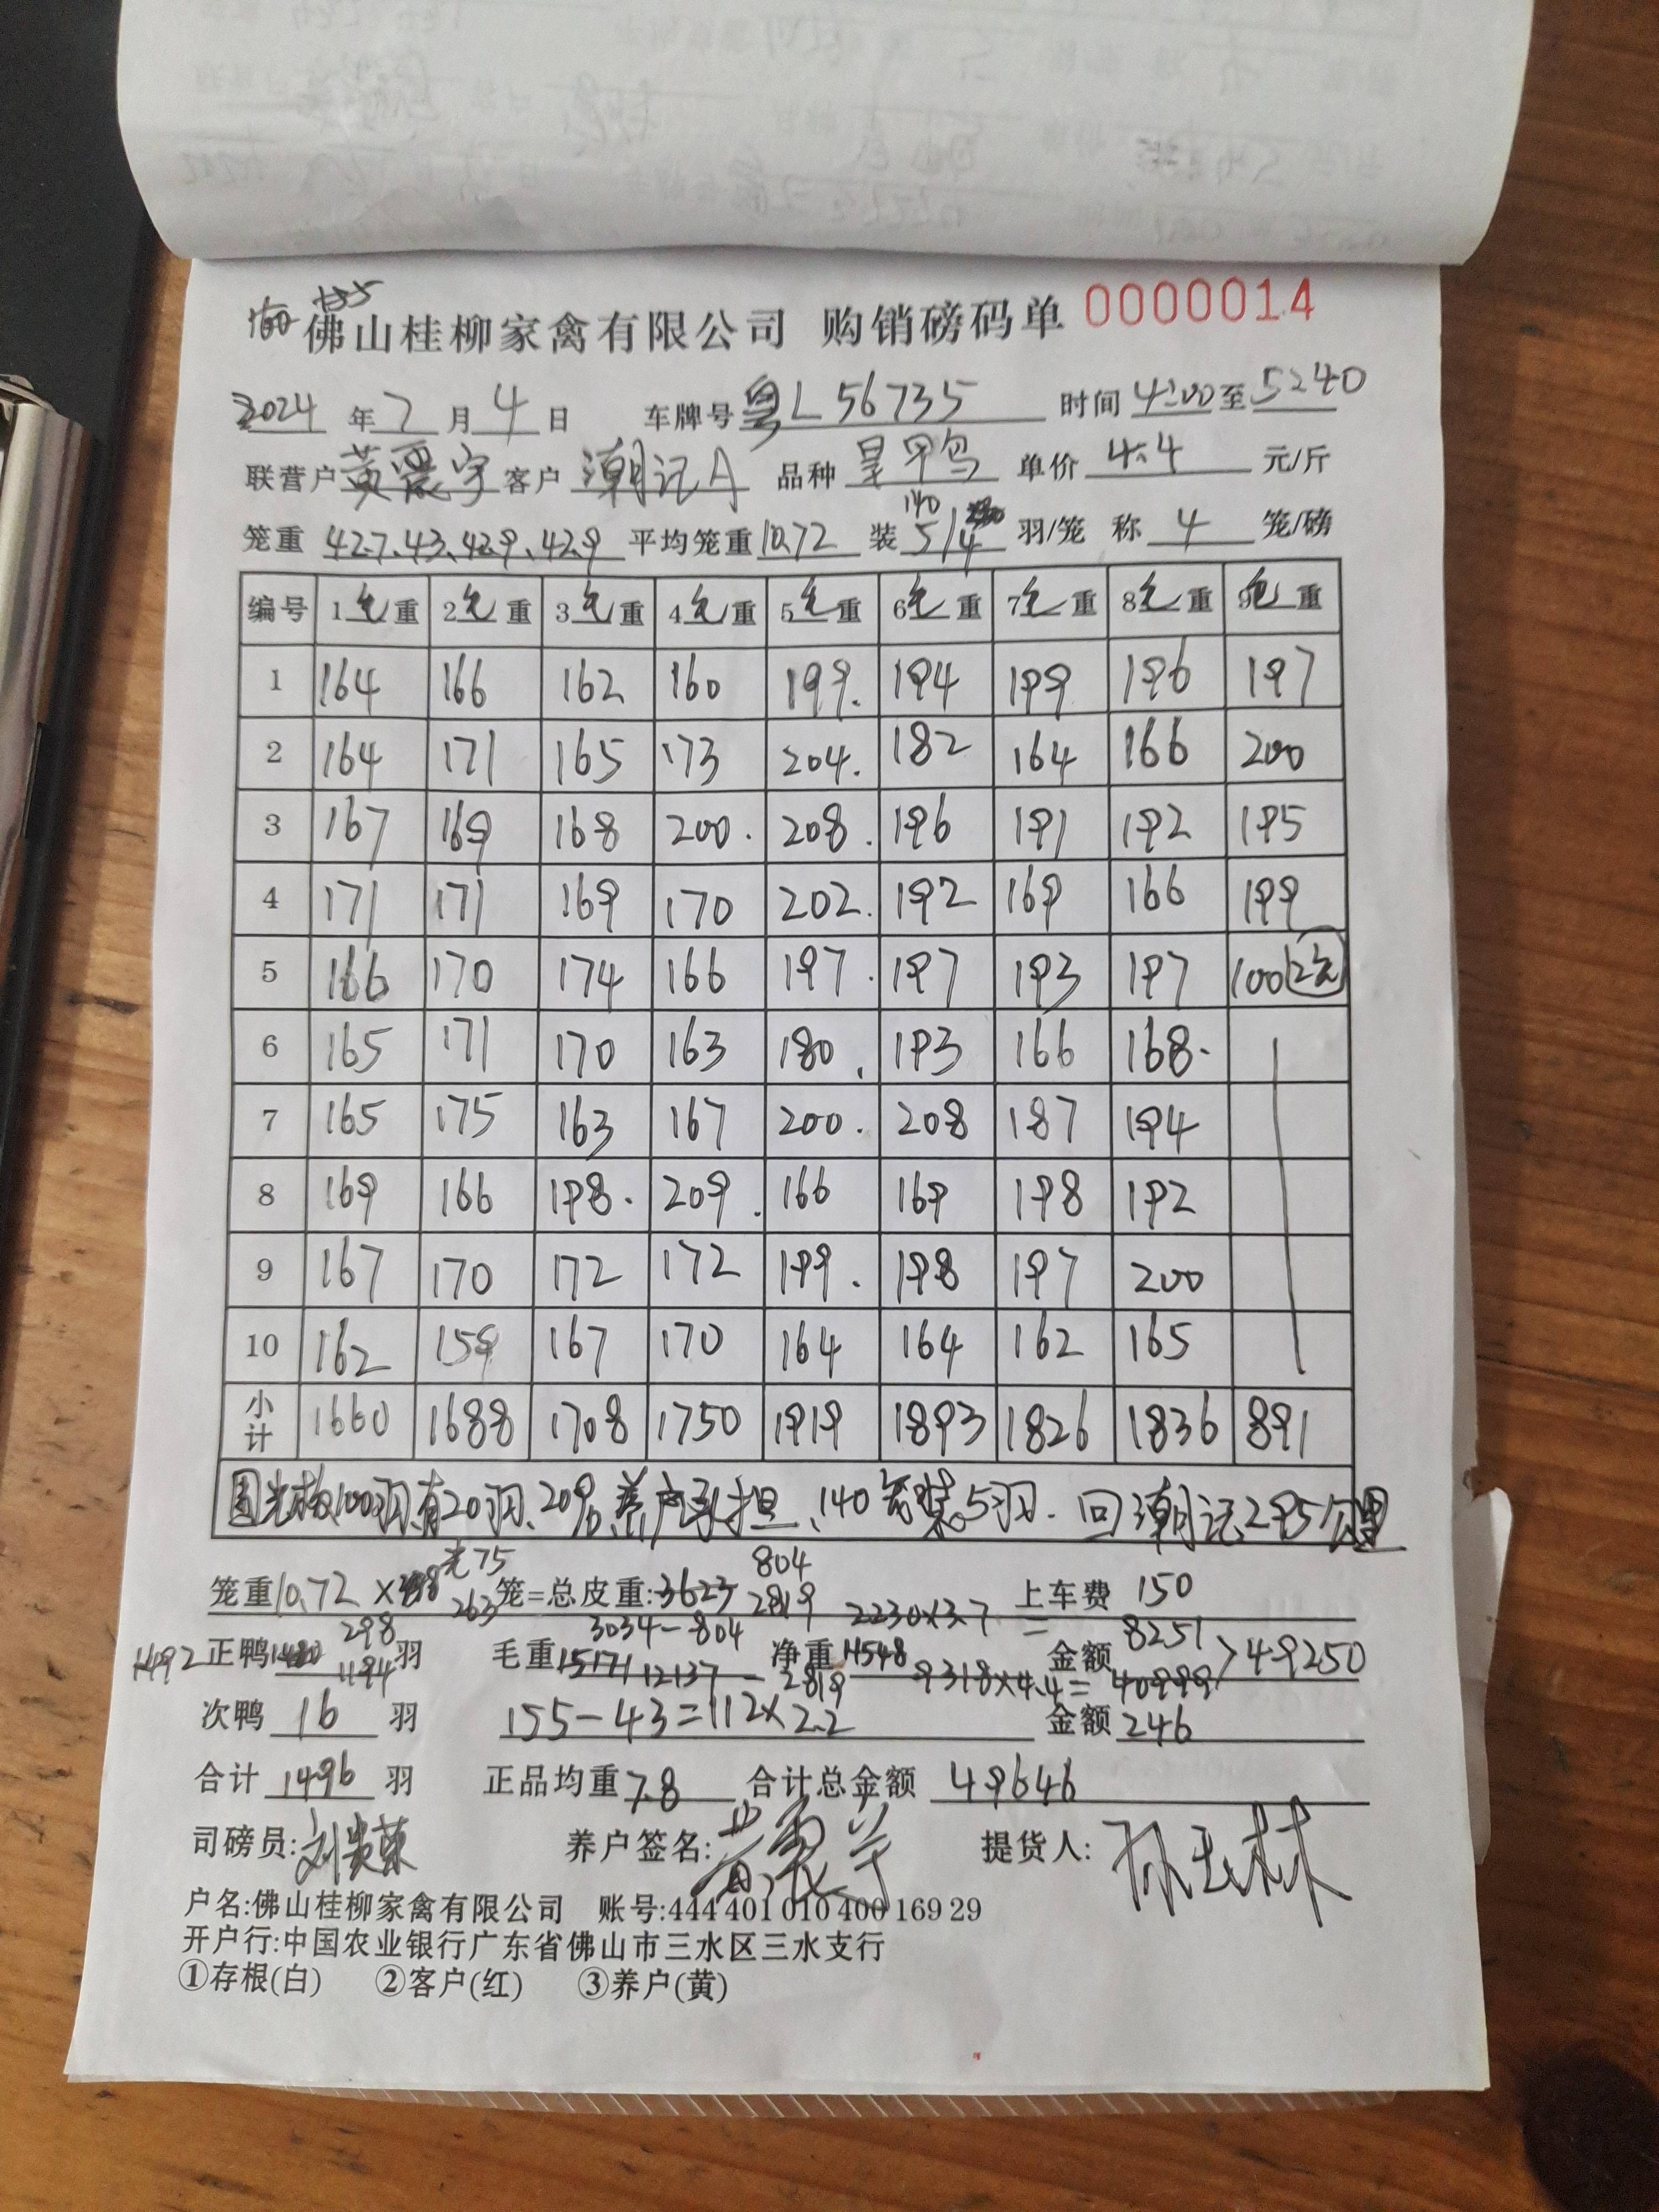 佛山桂柳家禽有限公司 购销磅码单 0000014
2024 年 7 月 4 日 车牌号 粤L56735 时间 4:00 至 5:40
联营户 黄震宇 客户 潮记A 品种 单价 4.4 元/斤
140
笼重 42.7、43、42.9、42.9 平均笼重 10.72 装 5/4 羽/笼 称 4 笼/磅
编号 1毛重 2毛重 3毛重 4毛重 5毛重 6毛重 7毛重 8毛重 9毛重
1 164 166 162 160 199. 194 199 196 197
2 164 171 165 173 204. 182 164 166 200
3 167 169 168 200. 208. 196 191 192 195
4 171 171 169 170 202. 192 169 166 199
5 166 170 174 166 197. 197 193 197 100 2毛
6 165 171 170 163 180. 193 166 168.
7 165 175 163 167 200. 208 187 194
8 169 166 198. 209. 166 169 198 192
9 167 170 172 172 199. 198 197 200
10 162 159 167 170 164 164 162 165
小计 1660 1688 1708 1750 1919 1893 1826 1836 891
100羽有20羽、20名养户承担、140笼装5羽. 回潮记295公里
光75 804
笼重 10.72 × 263 笼=总皮重: 3623 2819 上车费 150
298 3034-804 2230×3.7 = 8251
1492 正鸭 1194 羽 毛重 15171 12137 - 2819 净重 11548 9318×4.4= 金额 40999 >49250
次鸭 16 羽 155-43=112×2.2 金额 246
合计 1496 羽 正品均重 7.8 合计总金额 49646
司磅员: 刘贵荣 养户签名: 黄震宇 提货人: 孙玉林
户名:佛山桂柳家禽有限公司 账号:444 401 010 400 169 29
开户行:中国农业银行广东省佛山市三水区三水支行
①存根(白) ②客户(红) ③养户(黄)